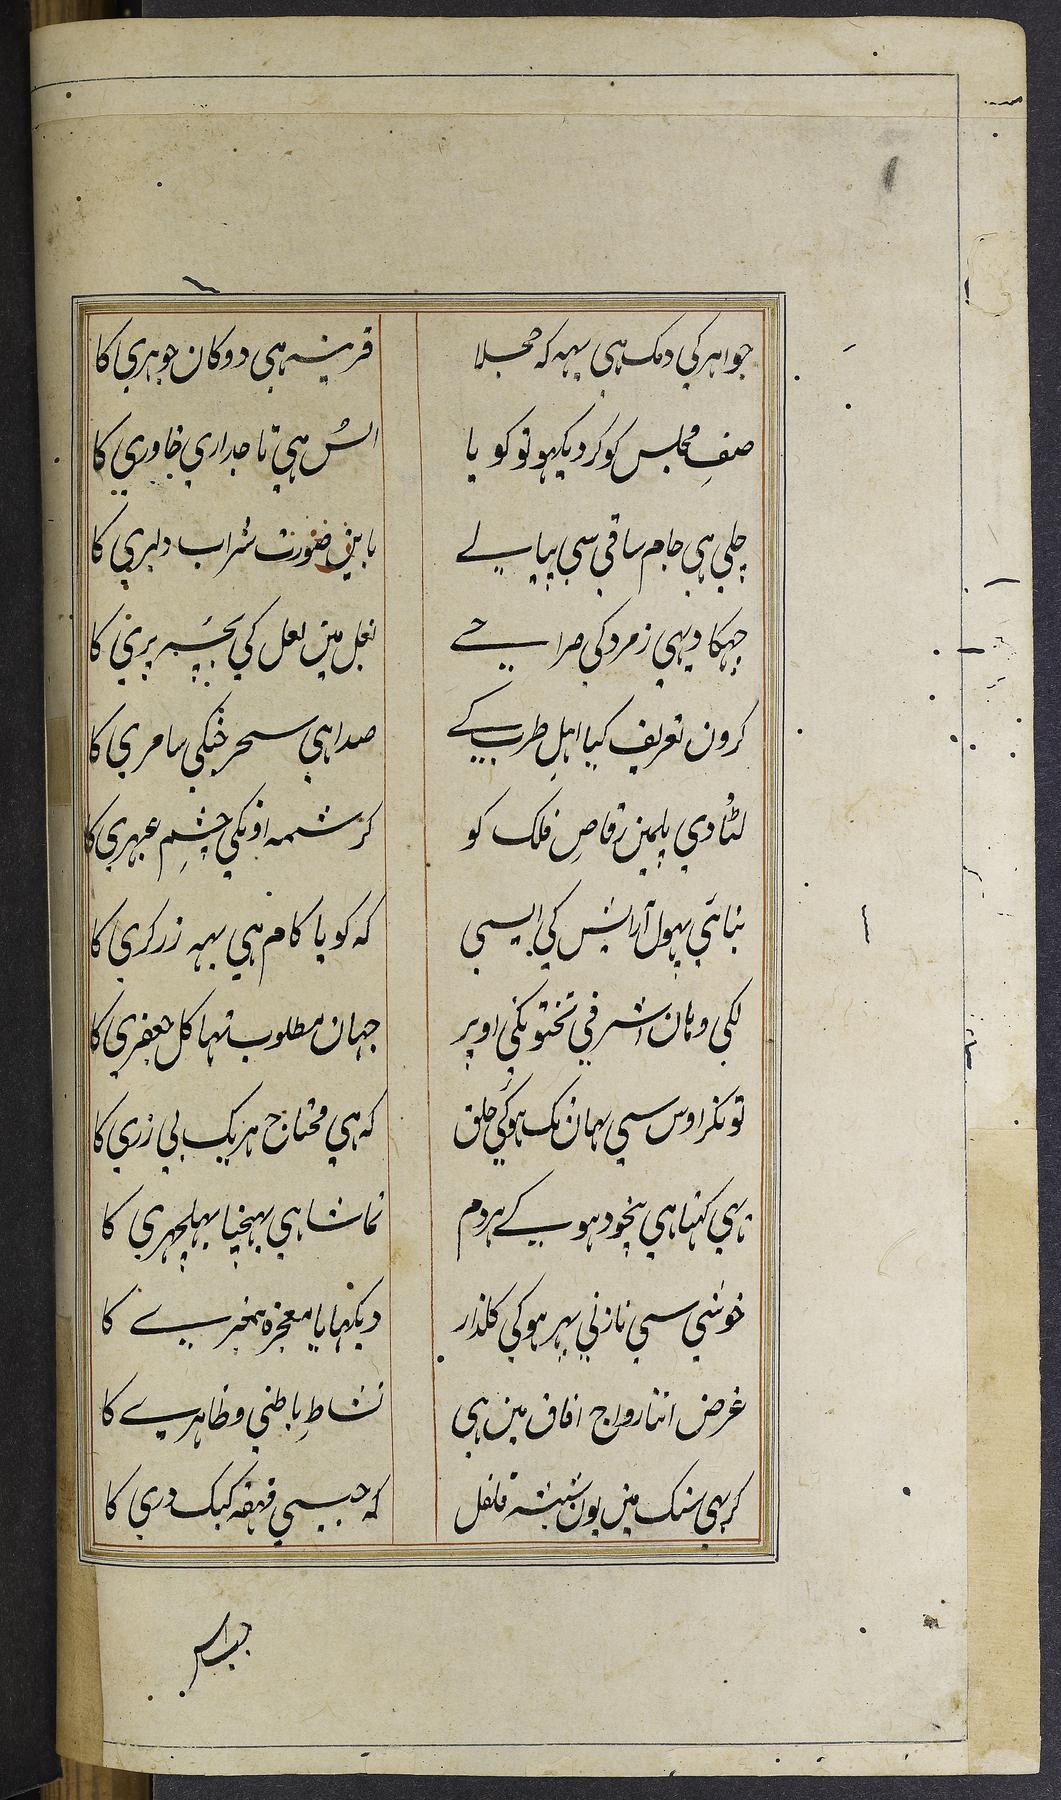 جواہر کی دمک ہی یہہ کہ جھلا قرینہ ہی دوکان جوہری کا
صفِ مجلس کو کر دیکہو تو کویا الس ہی تاجداری خاوری کا
چلی ہی جام ساقی سی پیاپے بابین صورت شراب دلبری کا
جہکا دیہی زمرد کی صراحے بغل مین لعل کی بچہ پری کا
کرون تعریف کیا اہلِ طرب کے صدا ہی سحر جنکی سامری کا
لٹا دی پلمین رقاصِ فلک کو کرشمہ اونکی چشمِ عبہری کا
بناتی پہول آرایش کی ایسی کہ کویا کام ہی یہہ زرکری کا
لکی وہان اشرفی تختونکی اوپر جہان مطلوب تہا کل جعفری کا
تونکر اوس سی یہان تک ہوئی خلق کہ ہی محتاج ہریک بی زری کا
یہی کہتا ہی بیخود ہوکے ہردم تماشا ہی پہنچنا پہلچہری کا
خوشی سی نازنی پہر ہوکی کلذار دیکہایا معجزہ پیغمبرے کا
غرض اتنا رواج افاق مین ہی نشاطِ باطنی و ظاہرے کا
کرہی سنک مین یون شیشہ قلقل کہ جیسی قہقہہ کبک دری کا